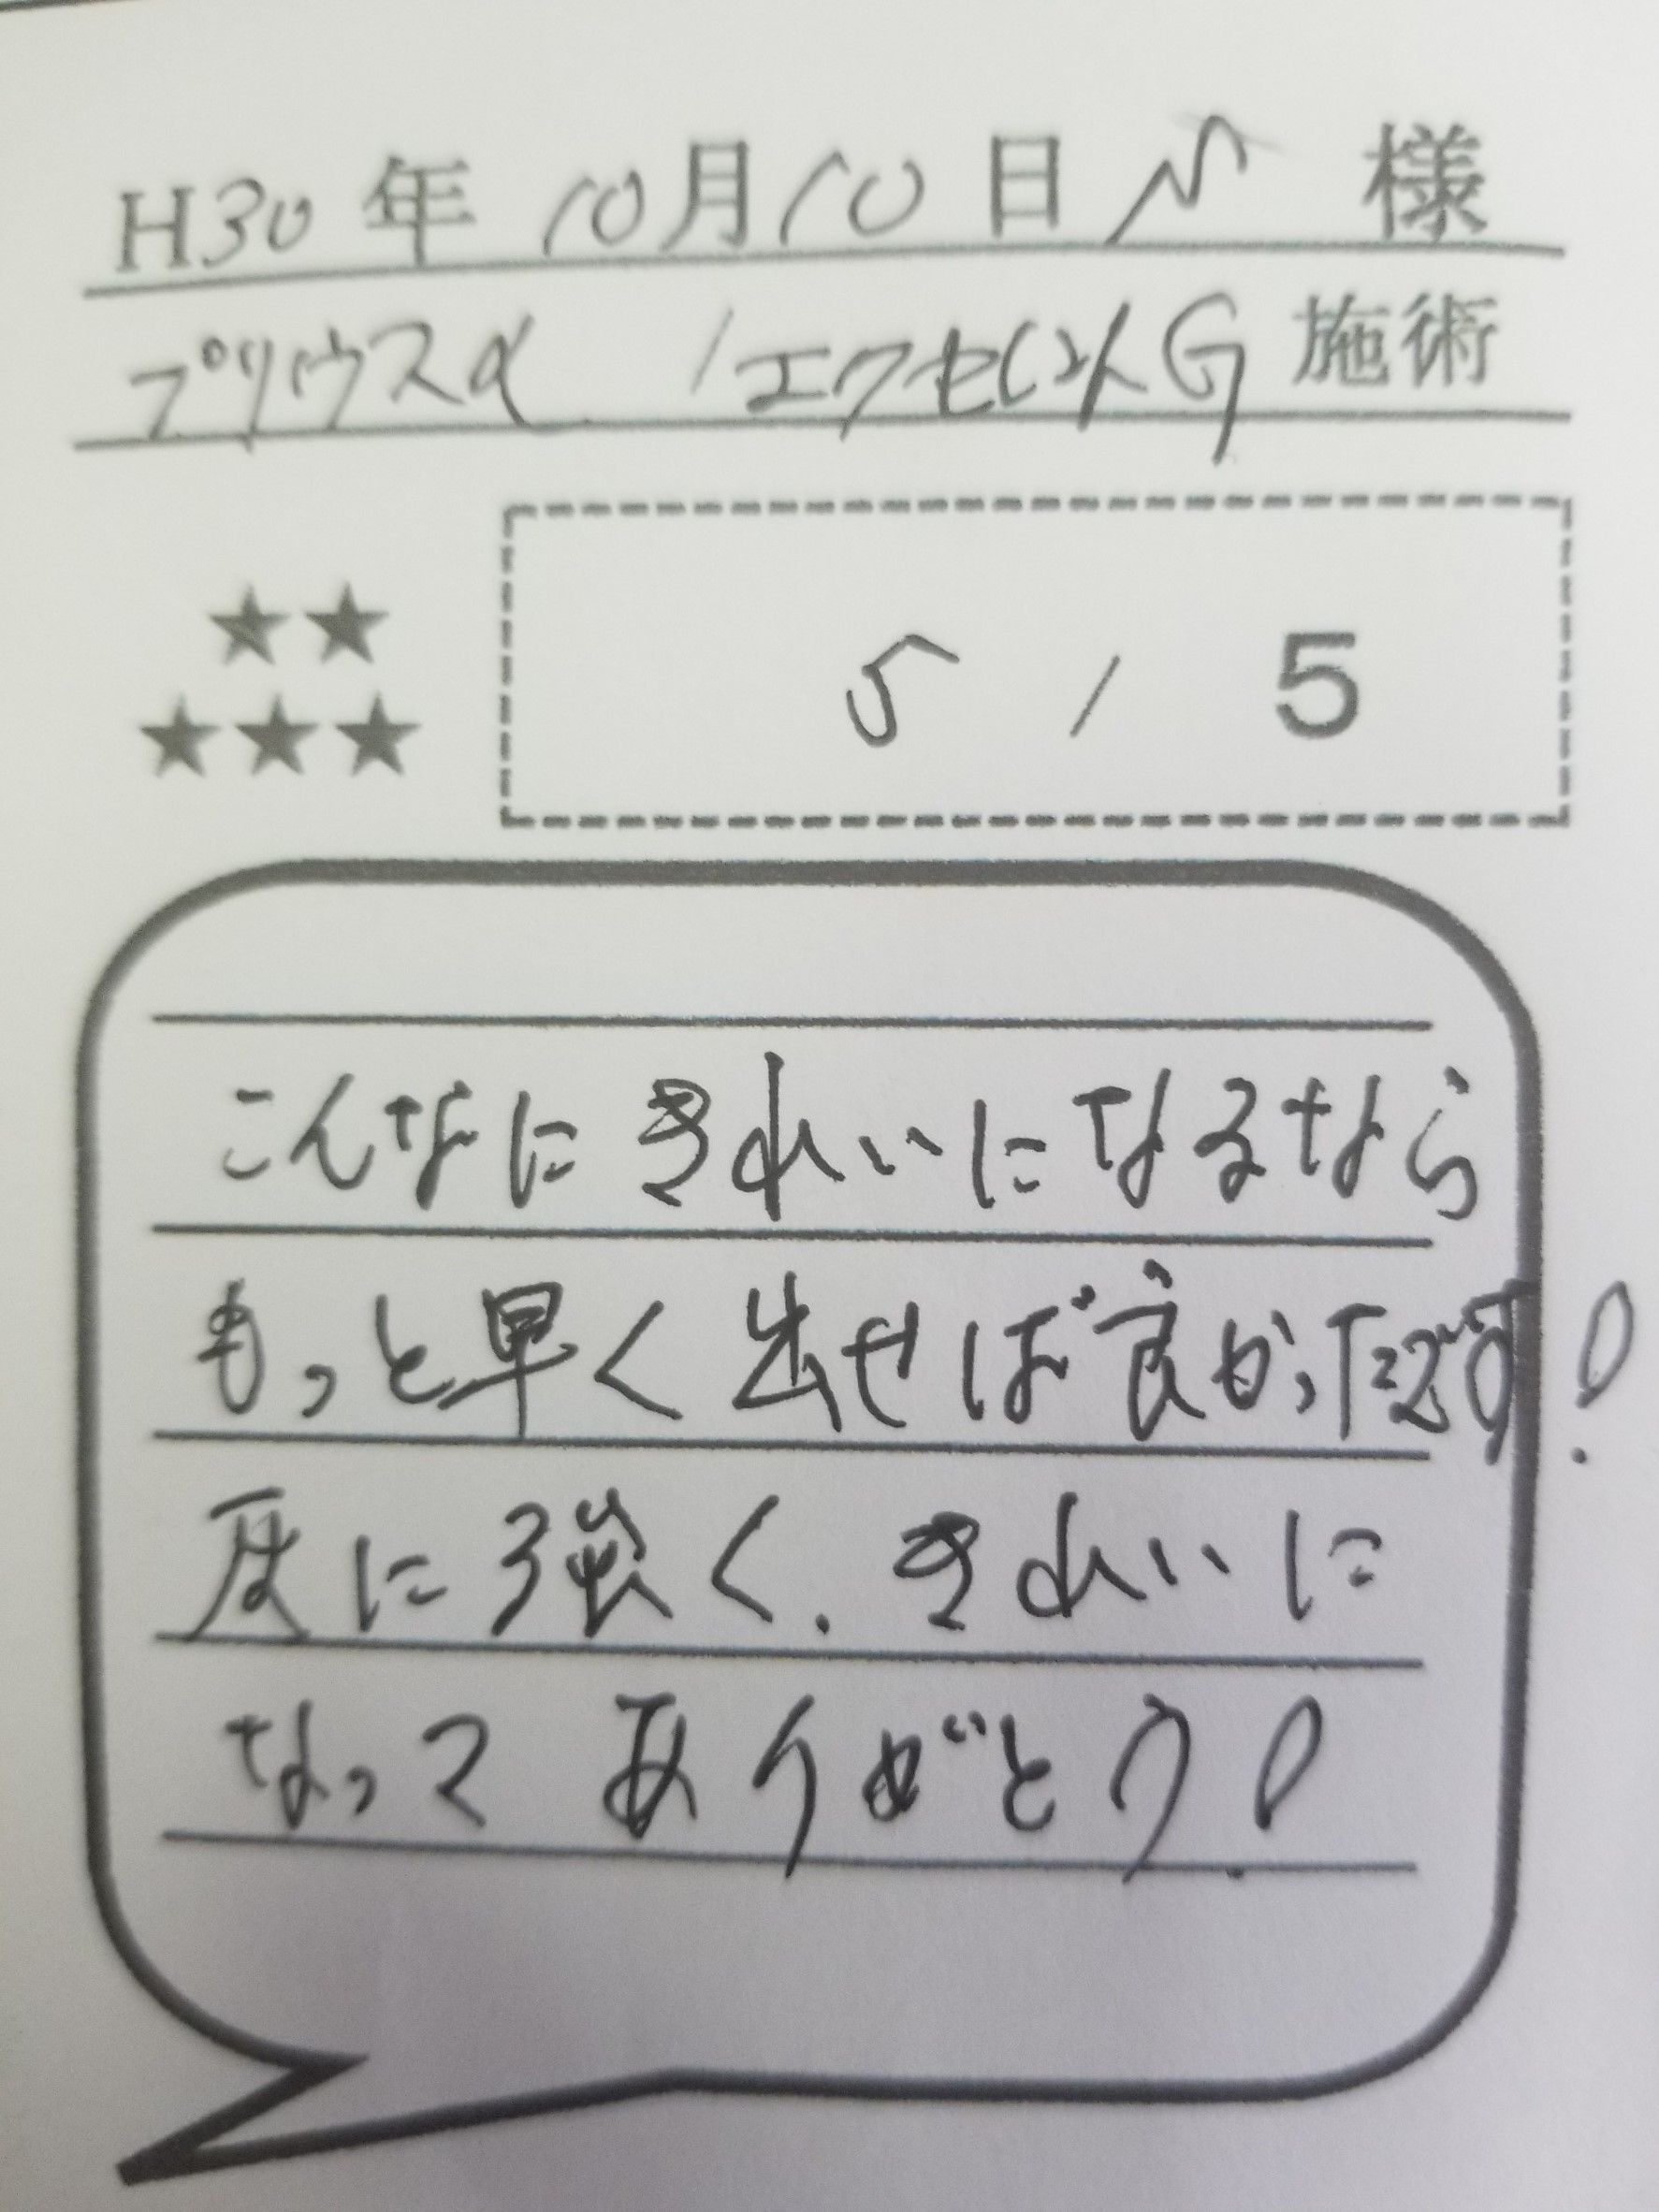 H30年 10月10日 M 様
プリウスα / エクセレントG 施術
★★
★★★
5 / 5
こんなにきれいになるなら
もっと早く出せば良かったです!
灰に強く、きれいに
なってありがとう!